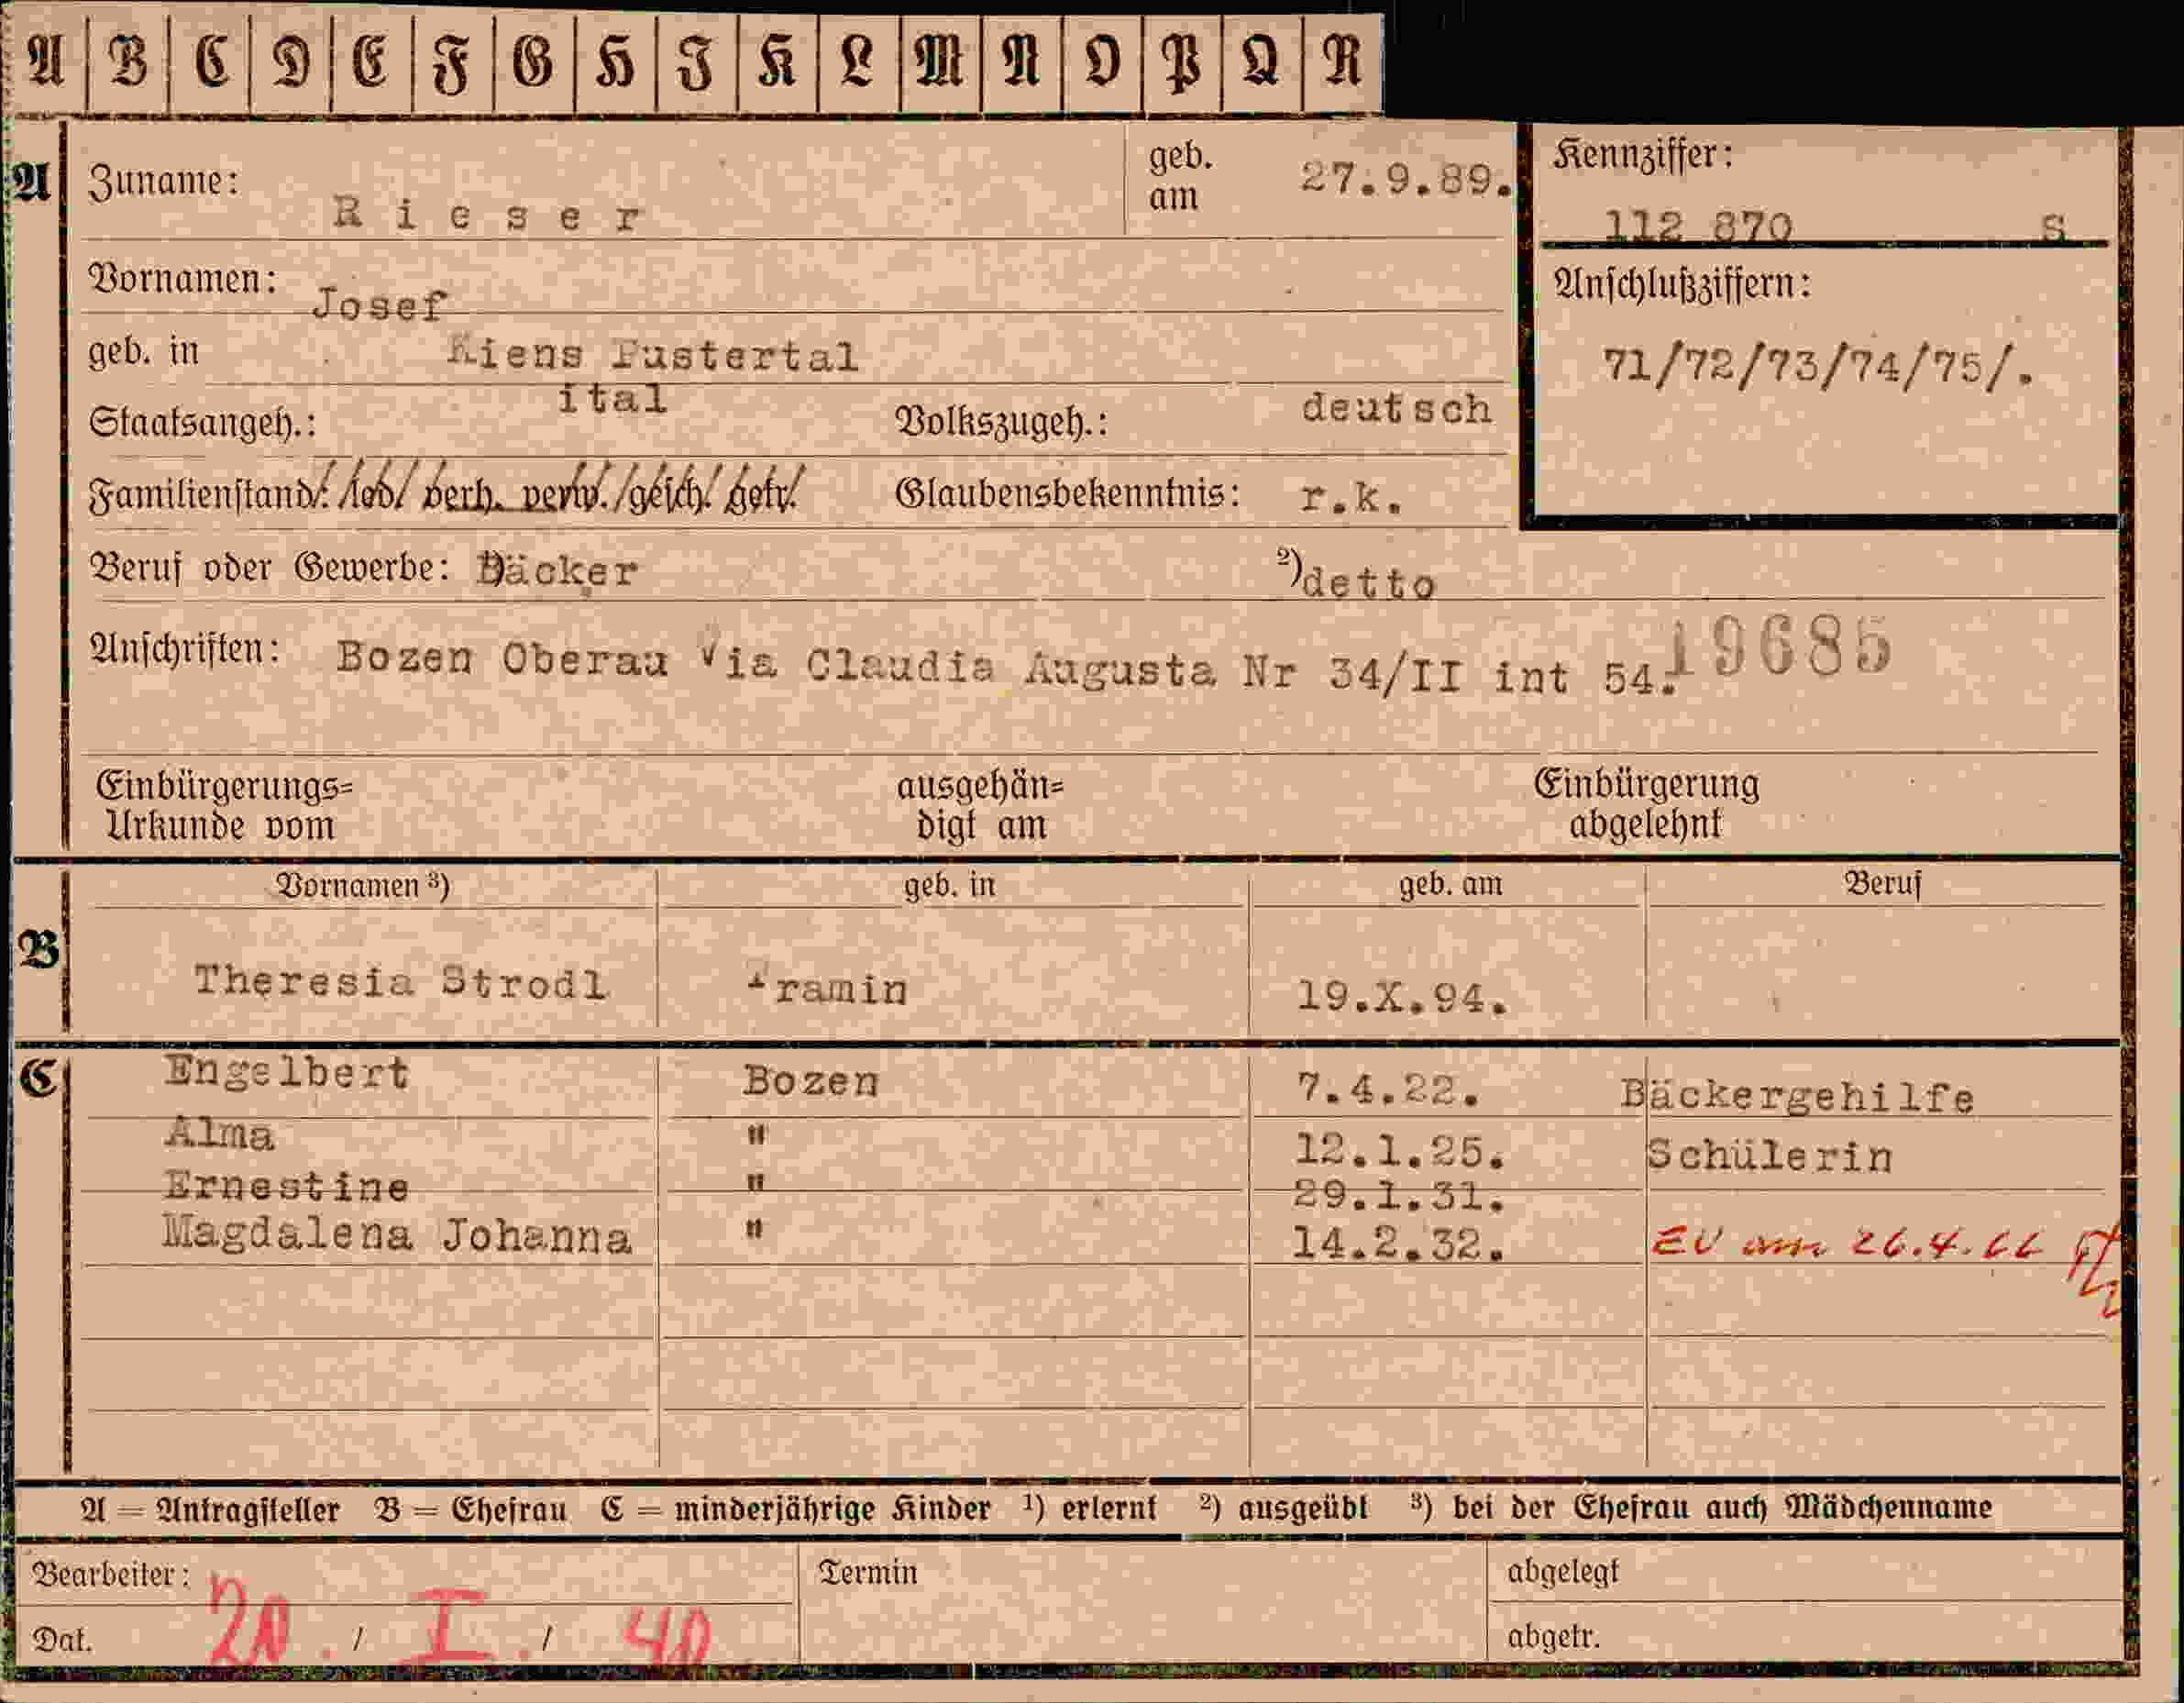 A B C D E F G H I K L M N O P Q R
A Zuname: Rieser geb. am 27.9.89. Kennziffer:
112 870 S
Vornamen: Josef Anschlußziffern:
71/72/73/74/75/.
geb. in Kiens Pustertal
Staatsangeh.: ital Volkszugeh.: deutsch
Familienstand: led. verh. verw. gesch. getr. Glaubensbekenntnis: r.k.
Beruf oder Gewerbe: Bäcker ²) detto
Anschriften: Bozen Oberau Via Claudia Augusta Nr 34/II int 54. 19685
Einbürgerungs= ausgehän= Einbürgerung
Urkunde vom digt am abgelehnt
Vornamen ³) geb. in geb. am Beruf
B Theresia Strodl Tramin 19.X.94.
C Engelbert Bozen 7.4.22. Bäckergehilfe
Alma " 12.1.25. Schülerin
Ernestine " 29.1.31.
Magdalena Johanna " 14.2.32. EU am 26.4.66
A = Antragsteller B = Ehefrau C = minderjährige Kinder ¹) erlernt ²) ausgeübt ³) bei der Ehefrau auch Mädchenname
Bearbeiter: Termin abgelegt
Dat. 20. / I. / 40 abgetr.